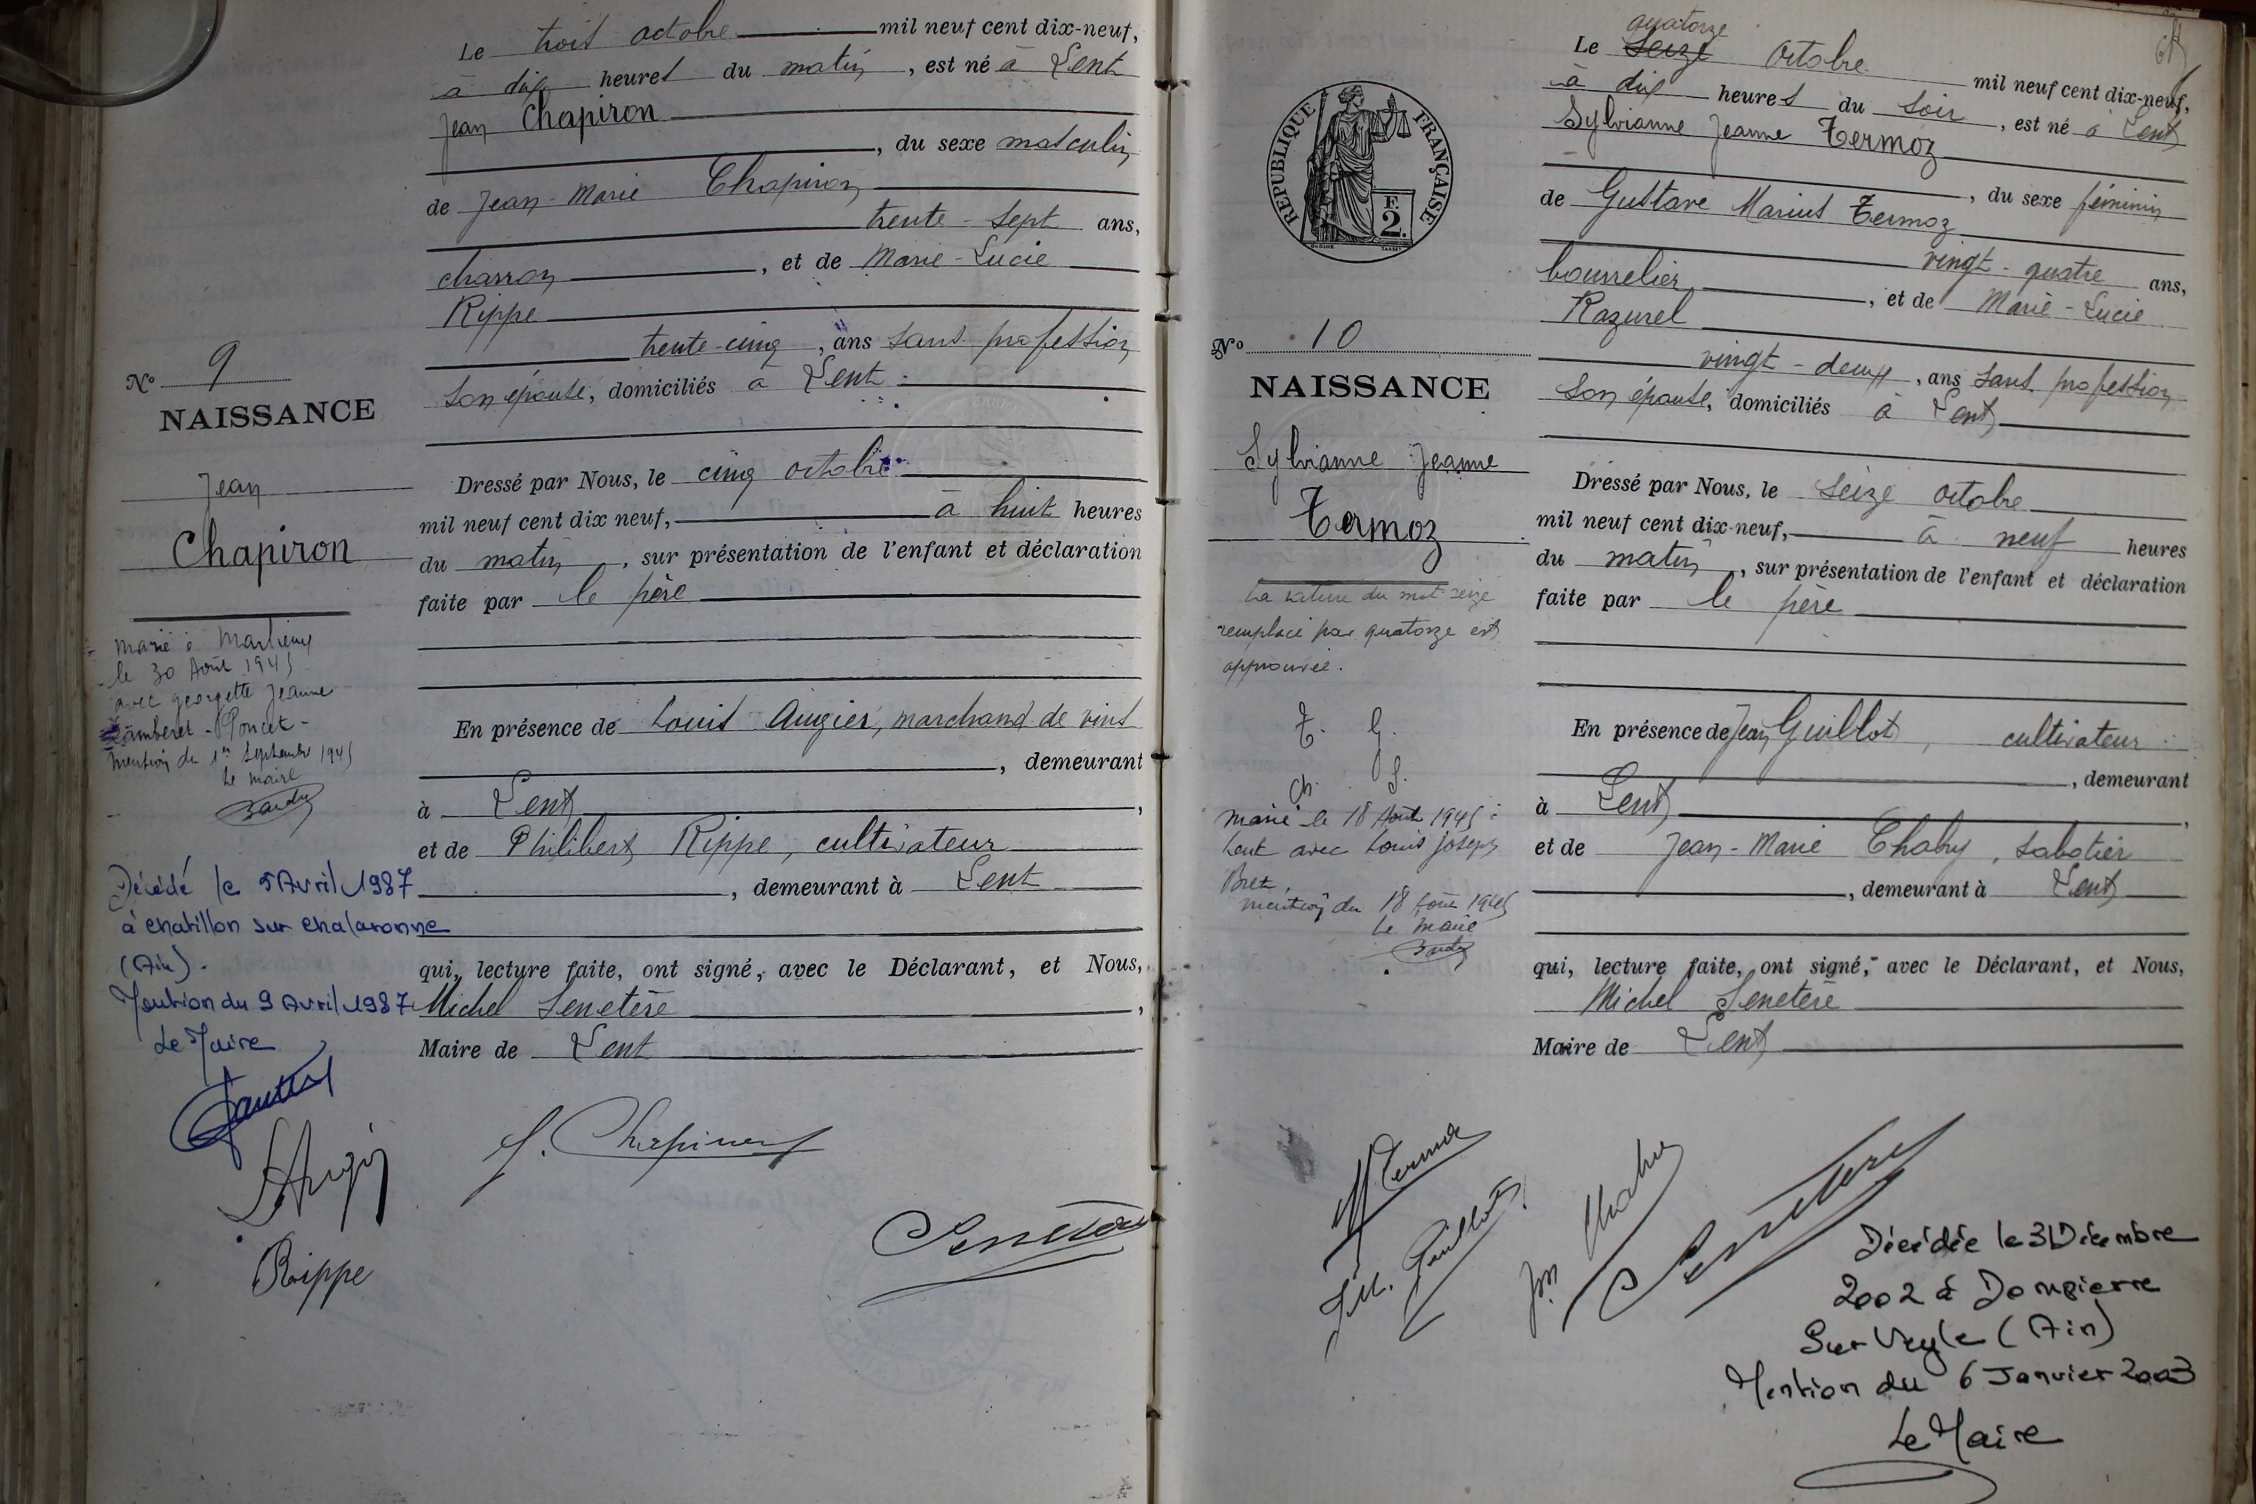 Le trois octobre mil neuf cent dix-neuf,
à dix heures du matin, est né à Lent
Jean Chapiron
, du sexe masculin
de Jean-Marie Chapiron
trente-sept ans,
charron, et de Marie-Lucie
Rippe
trente-cinq, ans sans profession
son épouse, domiciliés à Lent.
Dressé par Nous, le cinq octobre
mil neuf cent dix neuf, à huit heures
du matin, sur présentation de l'enfant et déclaration
faite par le père
En présence de Louis Augier, marchand de vins
, demeurant
à Lent,
et de Philibert Rippe, cultivateur
, demeurant à Lent
qui, lecture faite, ont signé, avec le Déclarant, et Nous,
Michel Senetère,
Maire de Lent
No 9
NAISSANCE
Jean
Chapiron
marié à
le 30 Août 1945
avec georgette Jeanne
Lamberet-Poncet-
mention du 1er Septembre 1945
Le maire
Décédé le 5 Avril 1987
à chatillon sur chalaronne
(Ain).
Mention du 9 Avril 1987
Le Maire
J. Chapiron
Rippe
Senetère
quatorze
Le seize octobre mil neuf cent dix-neuf,
à dix heures du soir, est né à Lent
Sylvianne Jeanne Termoz
, du sexe féminin
de Gustave Marius Termoz
vingt-quatre ans,
bourrelier, et de Marie-Lucie
Razurel
vingt-deux, ans sans profession
son épouse, domiciliés à Lent
Dressé par Nous, le seize octobre
mil neuf cent dix-neuf, à neuf heures
du matin, sur présentation de l'enfant et déclaration
faite par le père
En présence de Jean Guillot, cultivateur
, demeurant
à Lent,
et de Jean-Marie Chabry, sabotier
, demeurant à Lent
qui, lecture faite, ont signé, avec le Déclarant, et Nous,
Michel Senetère
Maire de Lent
RÉPUBLIQUE FRANÇAISE
F.
2.
No 10
NAISSANCE
Sylvianne Jeanne
Termoz
La rature du mot seize
remplacé par quatorze est
approuvée.
T. G.
Ch. S.
marié le 18 Août 1945 à
Lent avec Louis joseph
Bret
mention du 18 Août 1945
Le maire
Termoz
J.M. Guillot
Jm Chabry
Senetère
Décédée le 31 Décembre
2002 à Dompierre
Sur Veyle (Ain)
Mention du 6 Janvier 2003
Le Maire